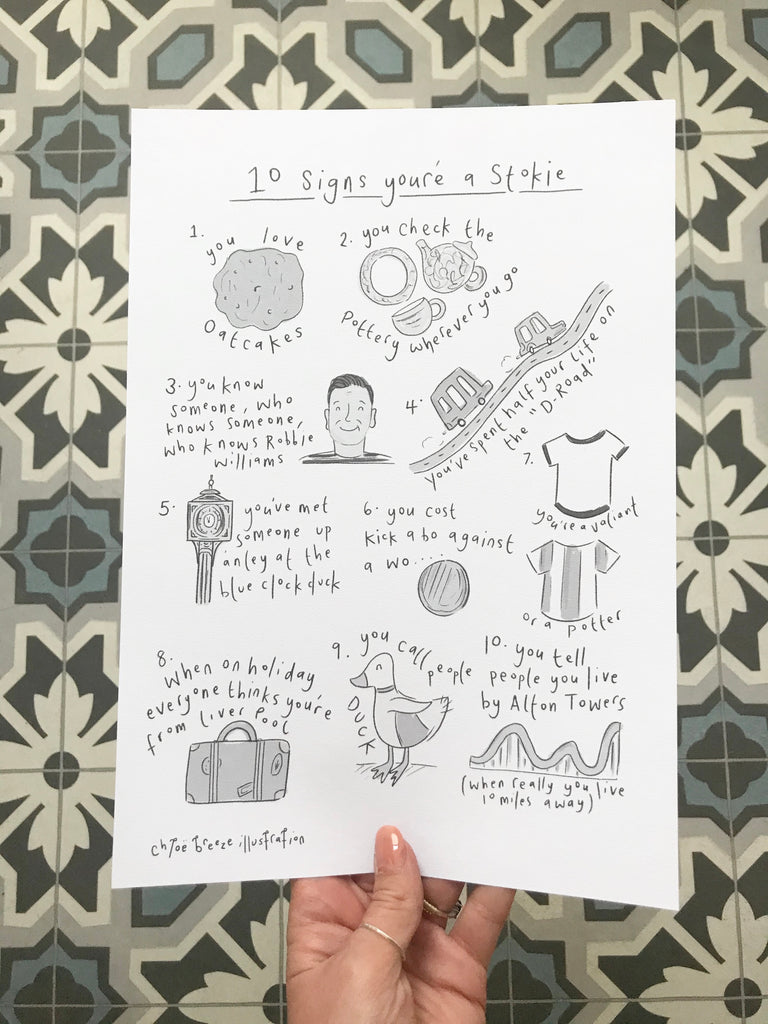 10 Signs you're a Stokie
1.
you love
Oatcakes
2. you check the
Pottery wherever you go
3. you know
someone, who
knows someone,
who knows Robbie
williams
4.
you've spent half your life on
the "D-Road"
5. you've met
someone up
anley at the
blue clock duck
6. you cost
kick a bo against
a wo....
7.
you're a valiant
or a potter
8.
When on holiday
everyone thinks you're
from liver pool
9. you call people
DUCK
10. you tell
people you live
by Alton Towers
(when really you live
10 miles away)
chloe breeze illustration